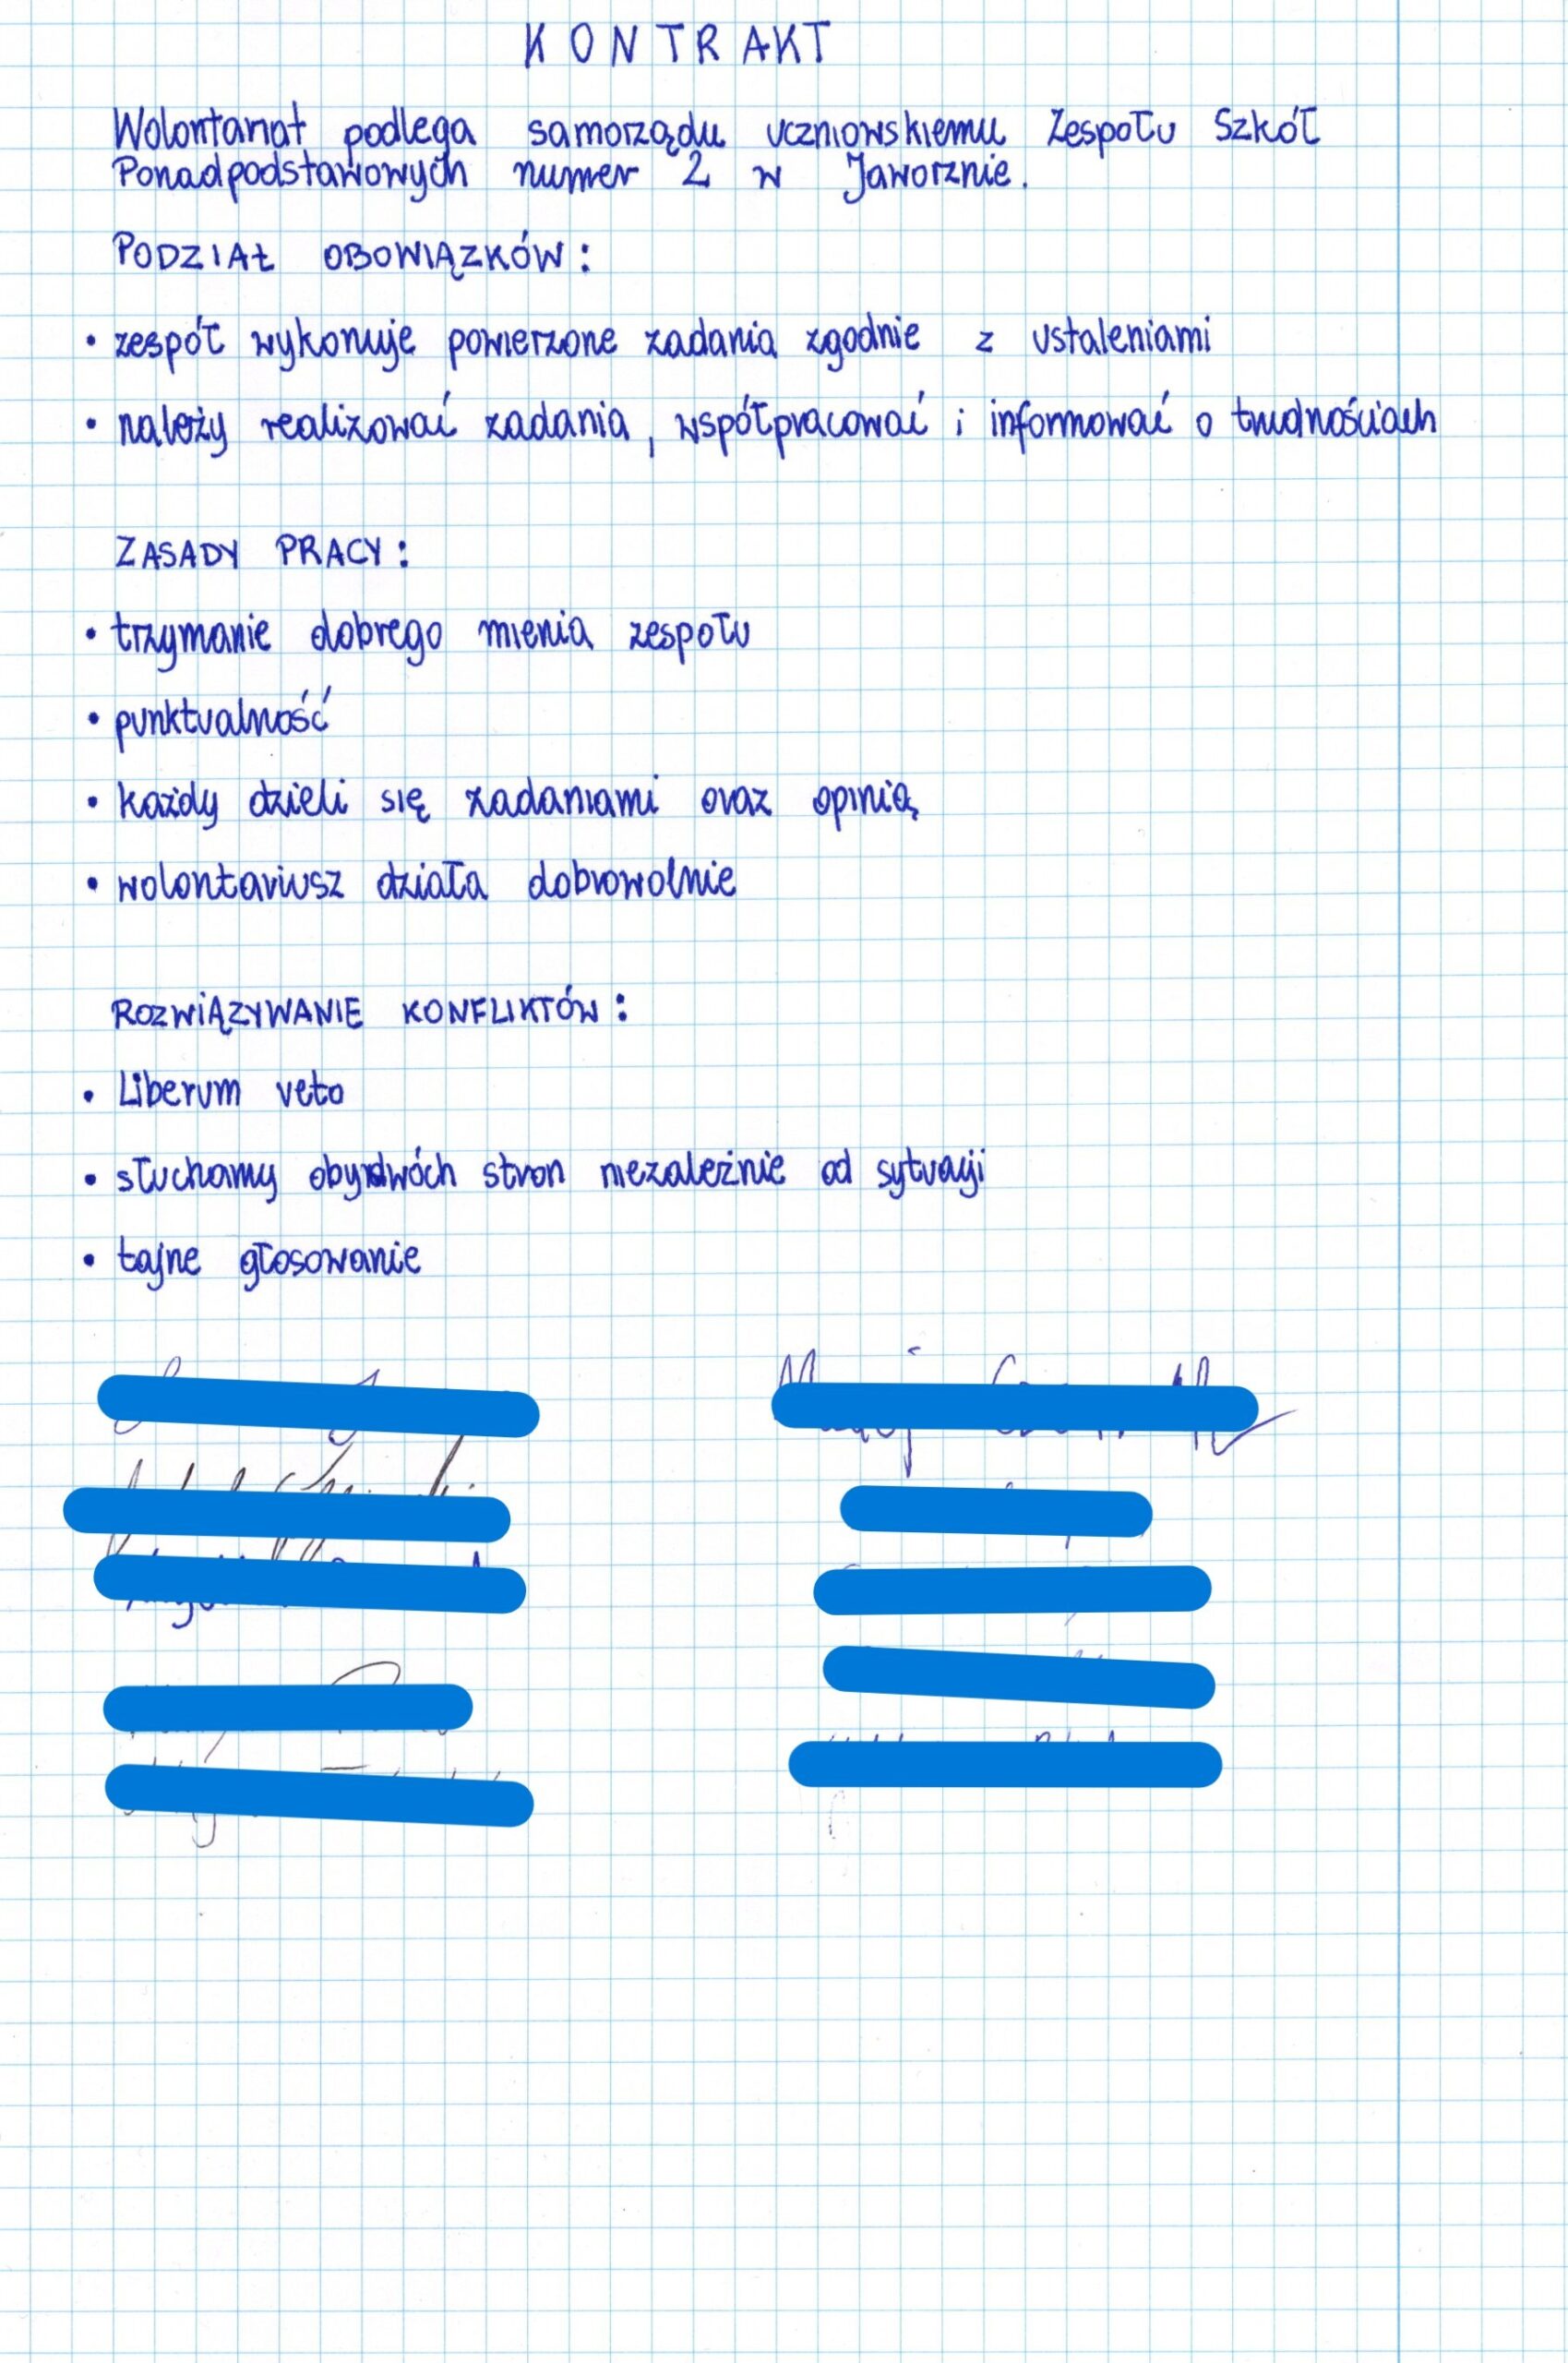 KONTRAKT
Wolontariat podlega samorządu uczniowskiemu Zespołu Szkół
Ponadpodstawowych numer 2 w Jaworznie.
PODZIAŁ OBOWIĄZKÓW:
• zespół wykonuje powierzone zadania zgodnie z ustaleniami
• należy realizować zadania, współpracować i informować o trudnościach
ZASADY PRACY:
• trzymanie dobrego mienia zespołu
• punktualność
• każdy dzieli się zadaniami oraz opinią
• wolontariusz działa dobrowolnie
ROZWIĄZYWANIE KONFLIKTÓW:
• Liberum veto
• słuchamy obydwóch stron niezależnie od sytuacji
• tajne głosowanie